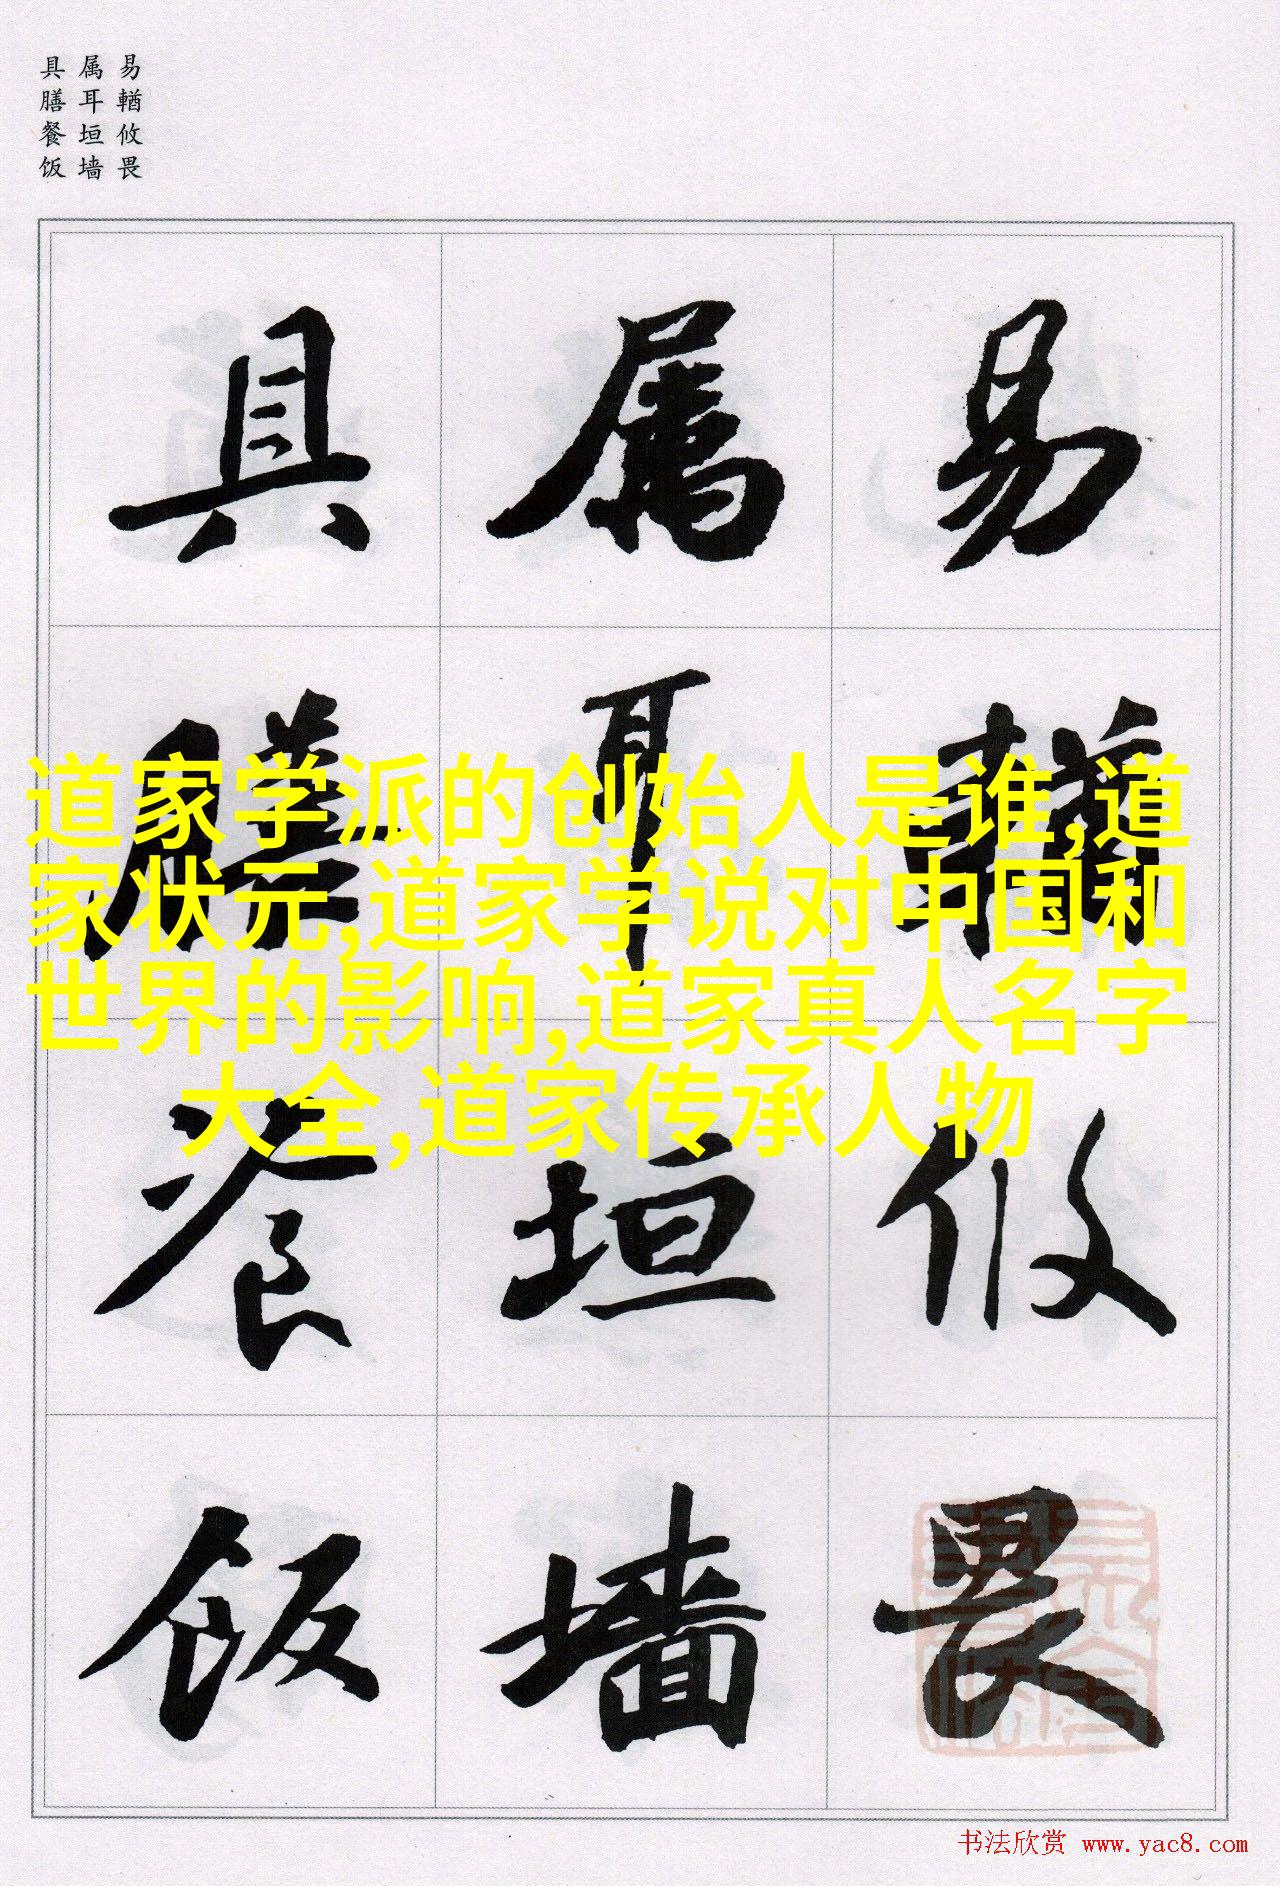 易輶攸畏
属耳垣墙
具膳餐饭
易輶攸畏
属耳垣墙
具膳餐饭
道家学派的创始人是谁,道
家状元,道家学说对中国和
世界的影响,道家真人名字
大全,道家传承人物
书法欣赏 www.yac8.com